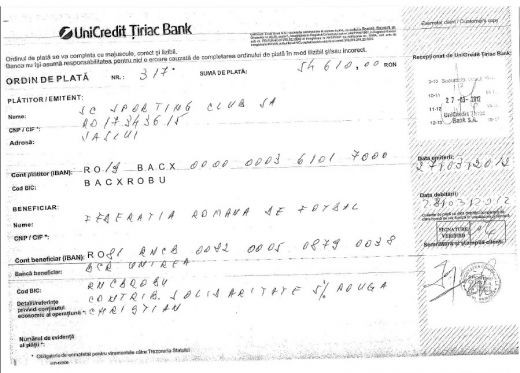 UniCredit Țiriac Bank
Exemplar client / Customer's copy
Ordinul de plată se va completa cu majuscule, corect și lizibil.
Banca nu își asumă responsabilitatea pentru nici o eroare cauzată de completarea ordinului de plată în mod ilizibil și/sau incorect.
ORDIN DE PLATĂ NR.: 317 SUMA DE PLATĂ: 54610,00 RON
Recepționat de UniCredit Țiriac Bank:
PLĂTITOR / EMITENT:
Nume: SC SPORTING CLUB SA
CNP / CIF *: RO 17343615
Adresă: VASLUI
27-03-2012
UniCredit Țiriac
Bank S.A.
Cont plătitor (IBAN): RO19 BACX 0000 0003 6101 7000
Cod BIC: BACXROBU
Data emiterii:
27/03/2012
Data debitării:
28/03/2012
BENEFICIAR:
Nume: FEDERATIA ROMANA DE FOTBAL
CNP / CIF *:
SIGNATURE
VERIFIED
Cont beneficiar (IBAN): RO81 RNCB 0092 0005 0879 0038
Semnătura și ștampila client:
Bancă beneficiar: BCR UNIREA
Cod BIC: RNCBROBU
Detalii/referințe
privind conținutul
economic al operațiunii
CONTRIB. SOLIDARITATE 5% POUGA
CHRISTIAN
Numărul de evidență
al plății *:
* Obligatoriu de completat pentru viramentele către Trezoreria Statului